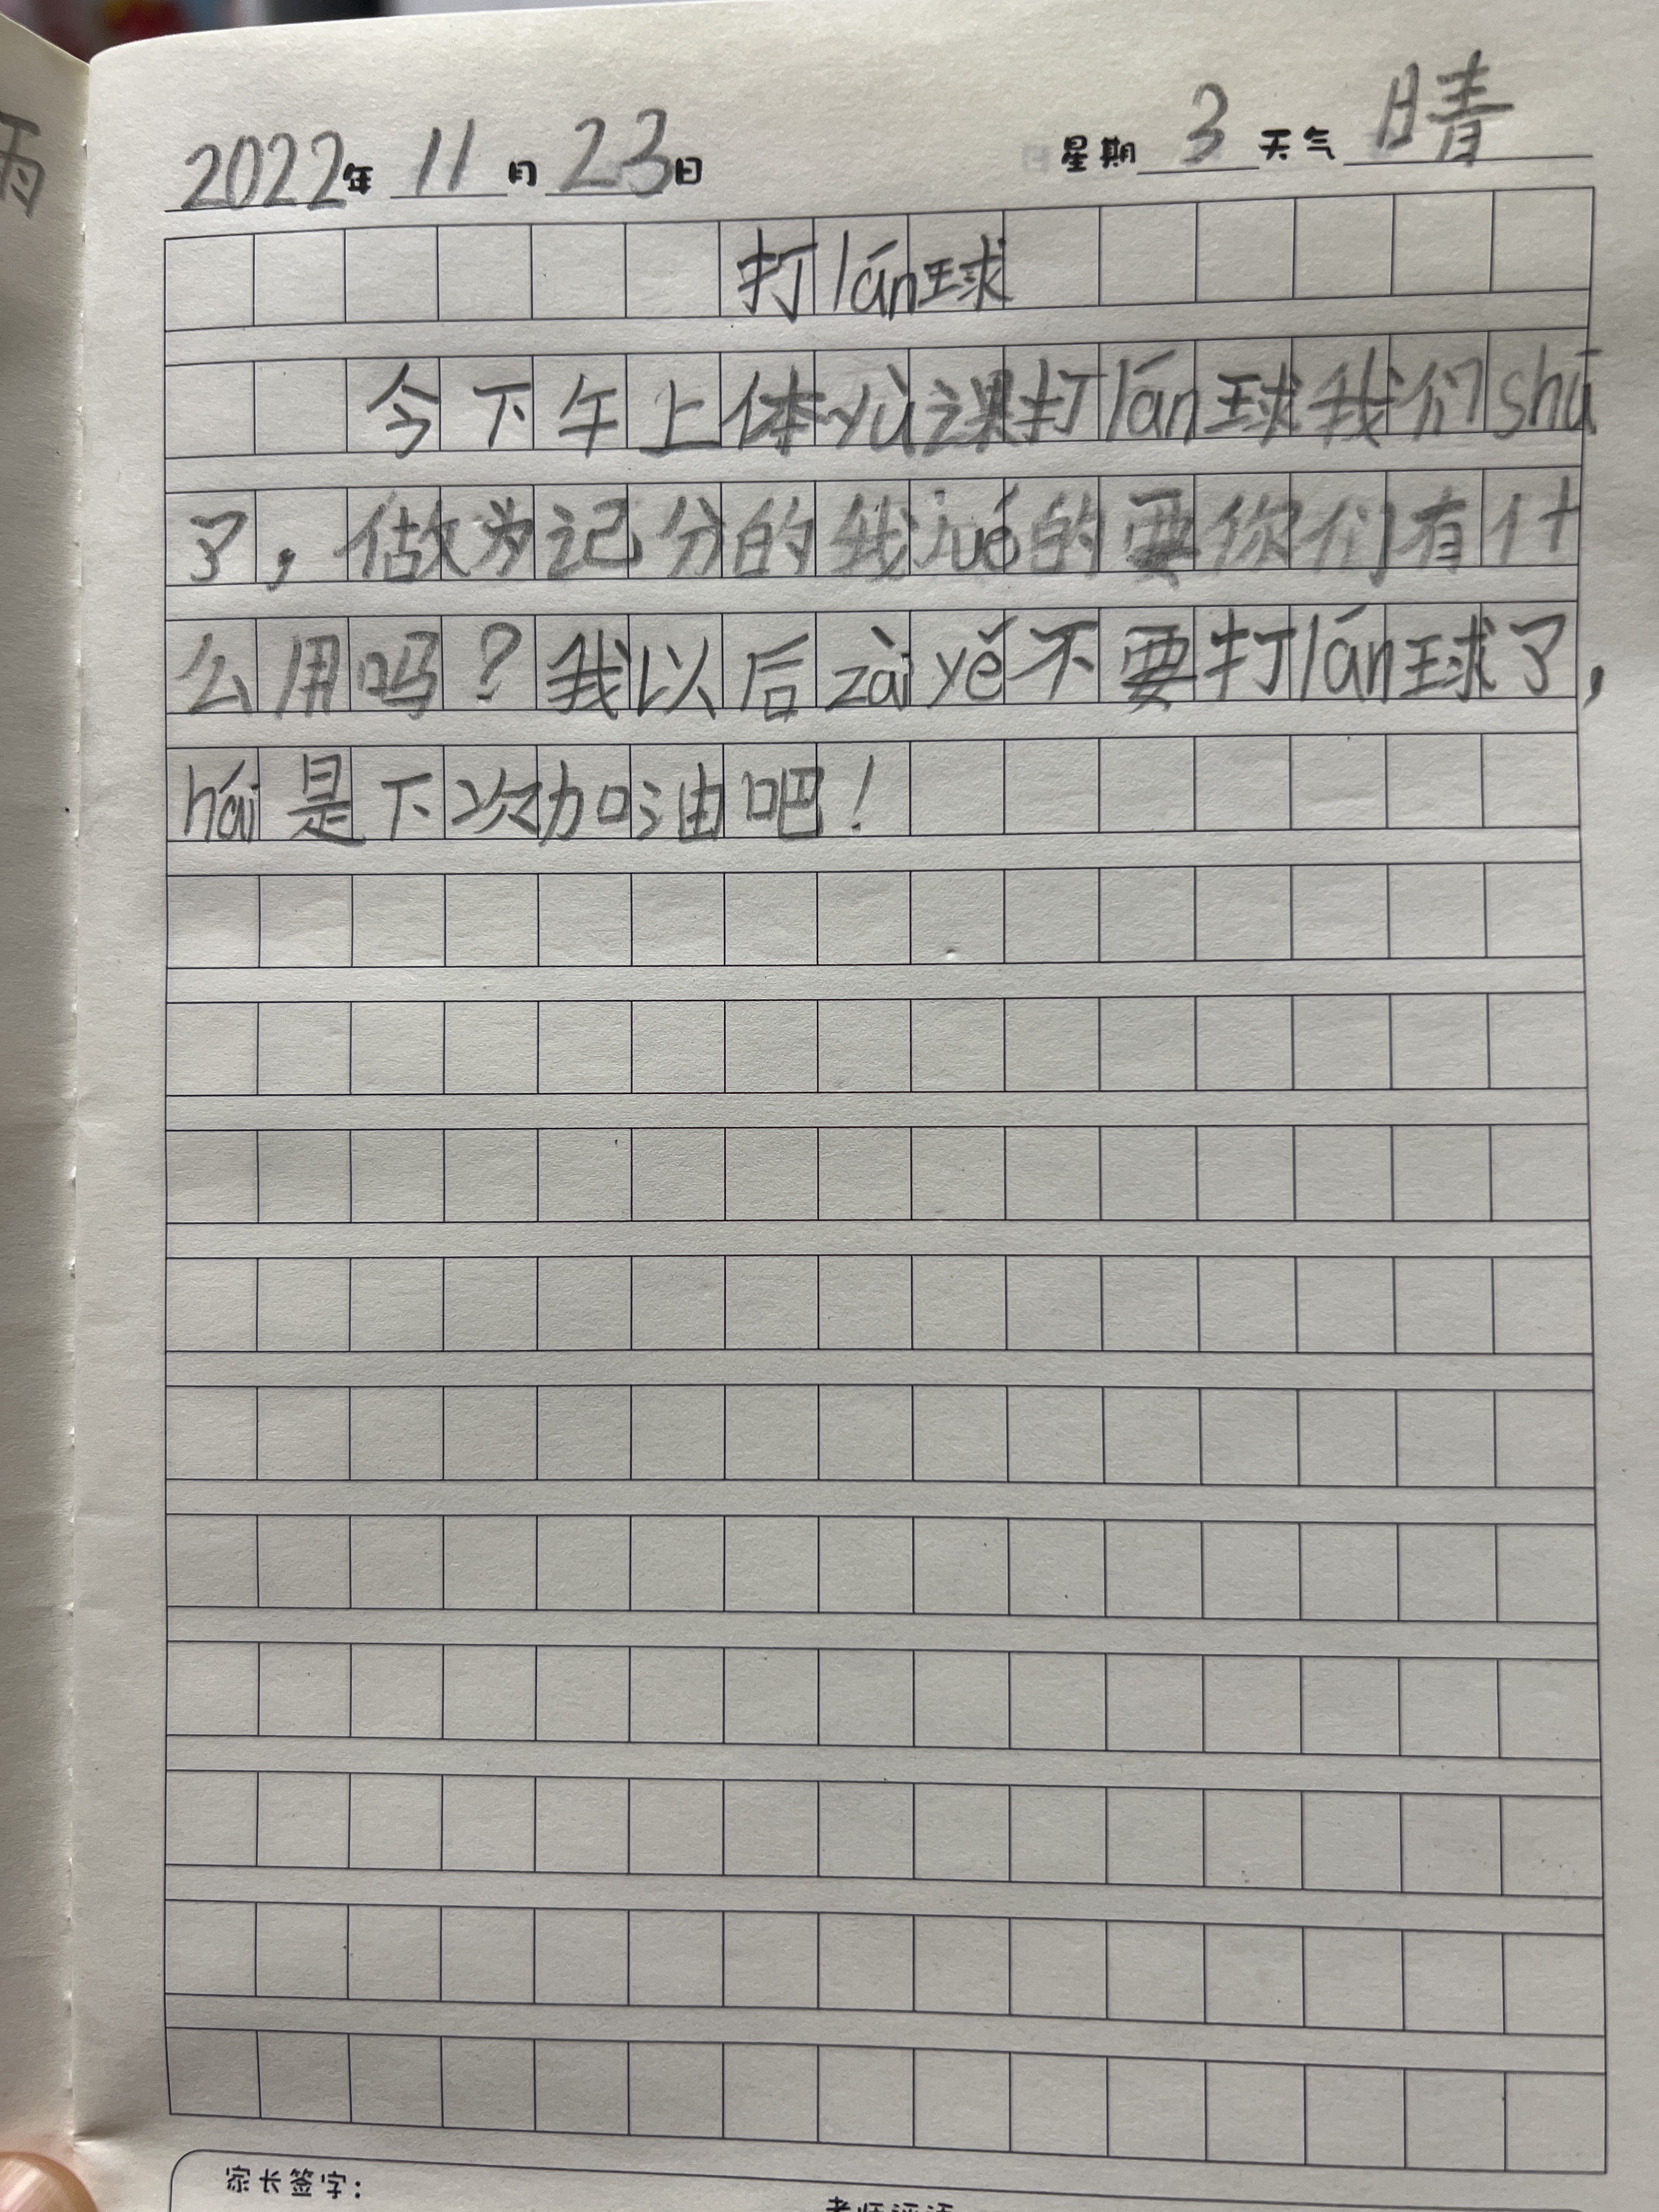 雨
2022年 11月 23日 星期 3 天气 晴
打lán球
今下午上体yù课打lán球我们shū
了，做为记分的我jué的要你们有什
么用吗？我以后zài yě不要打lán球了，
hái是下次加油吧！
家长签字：
老师评语